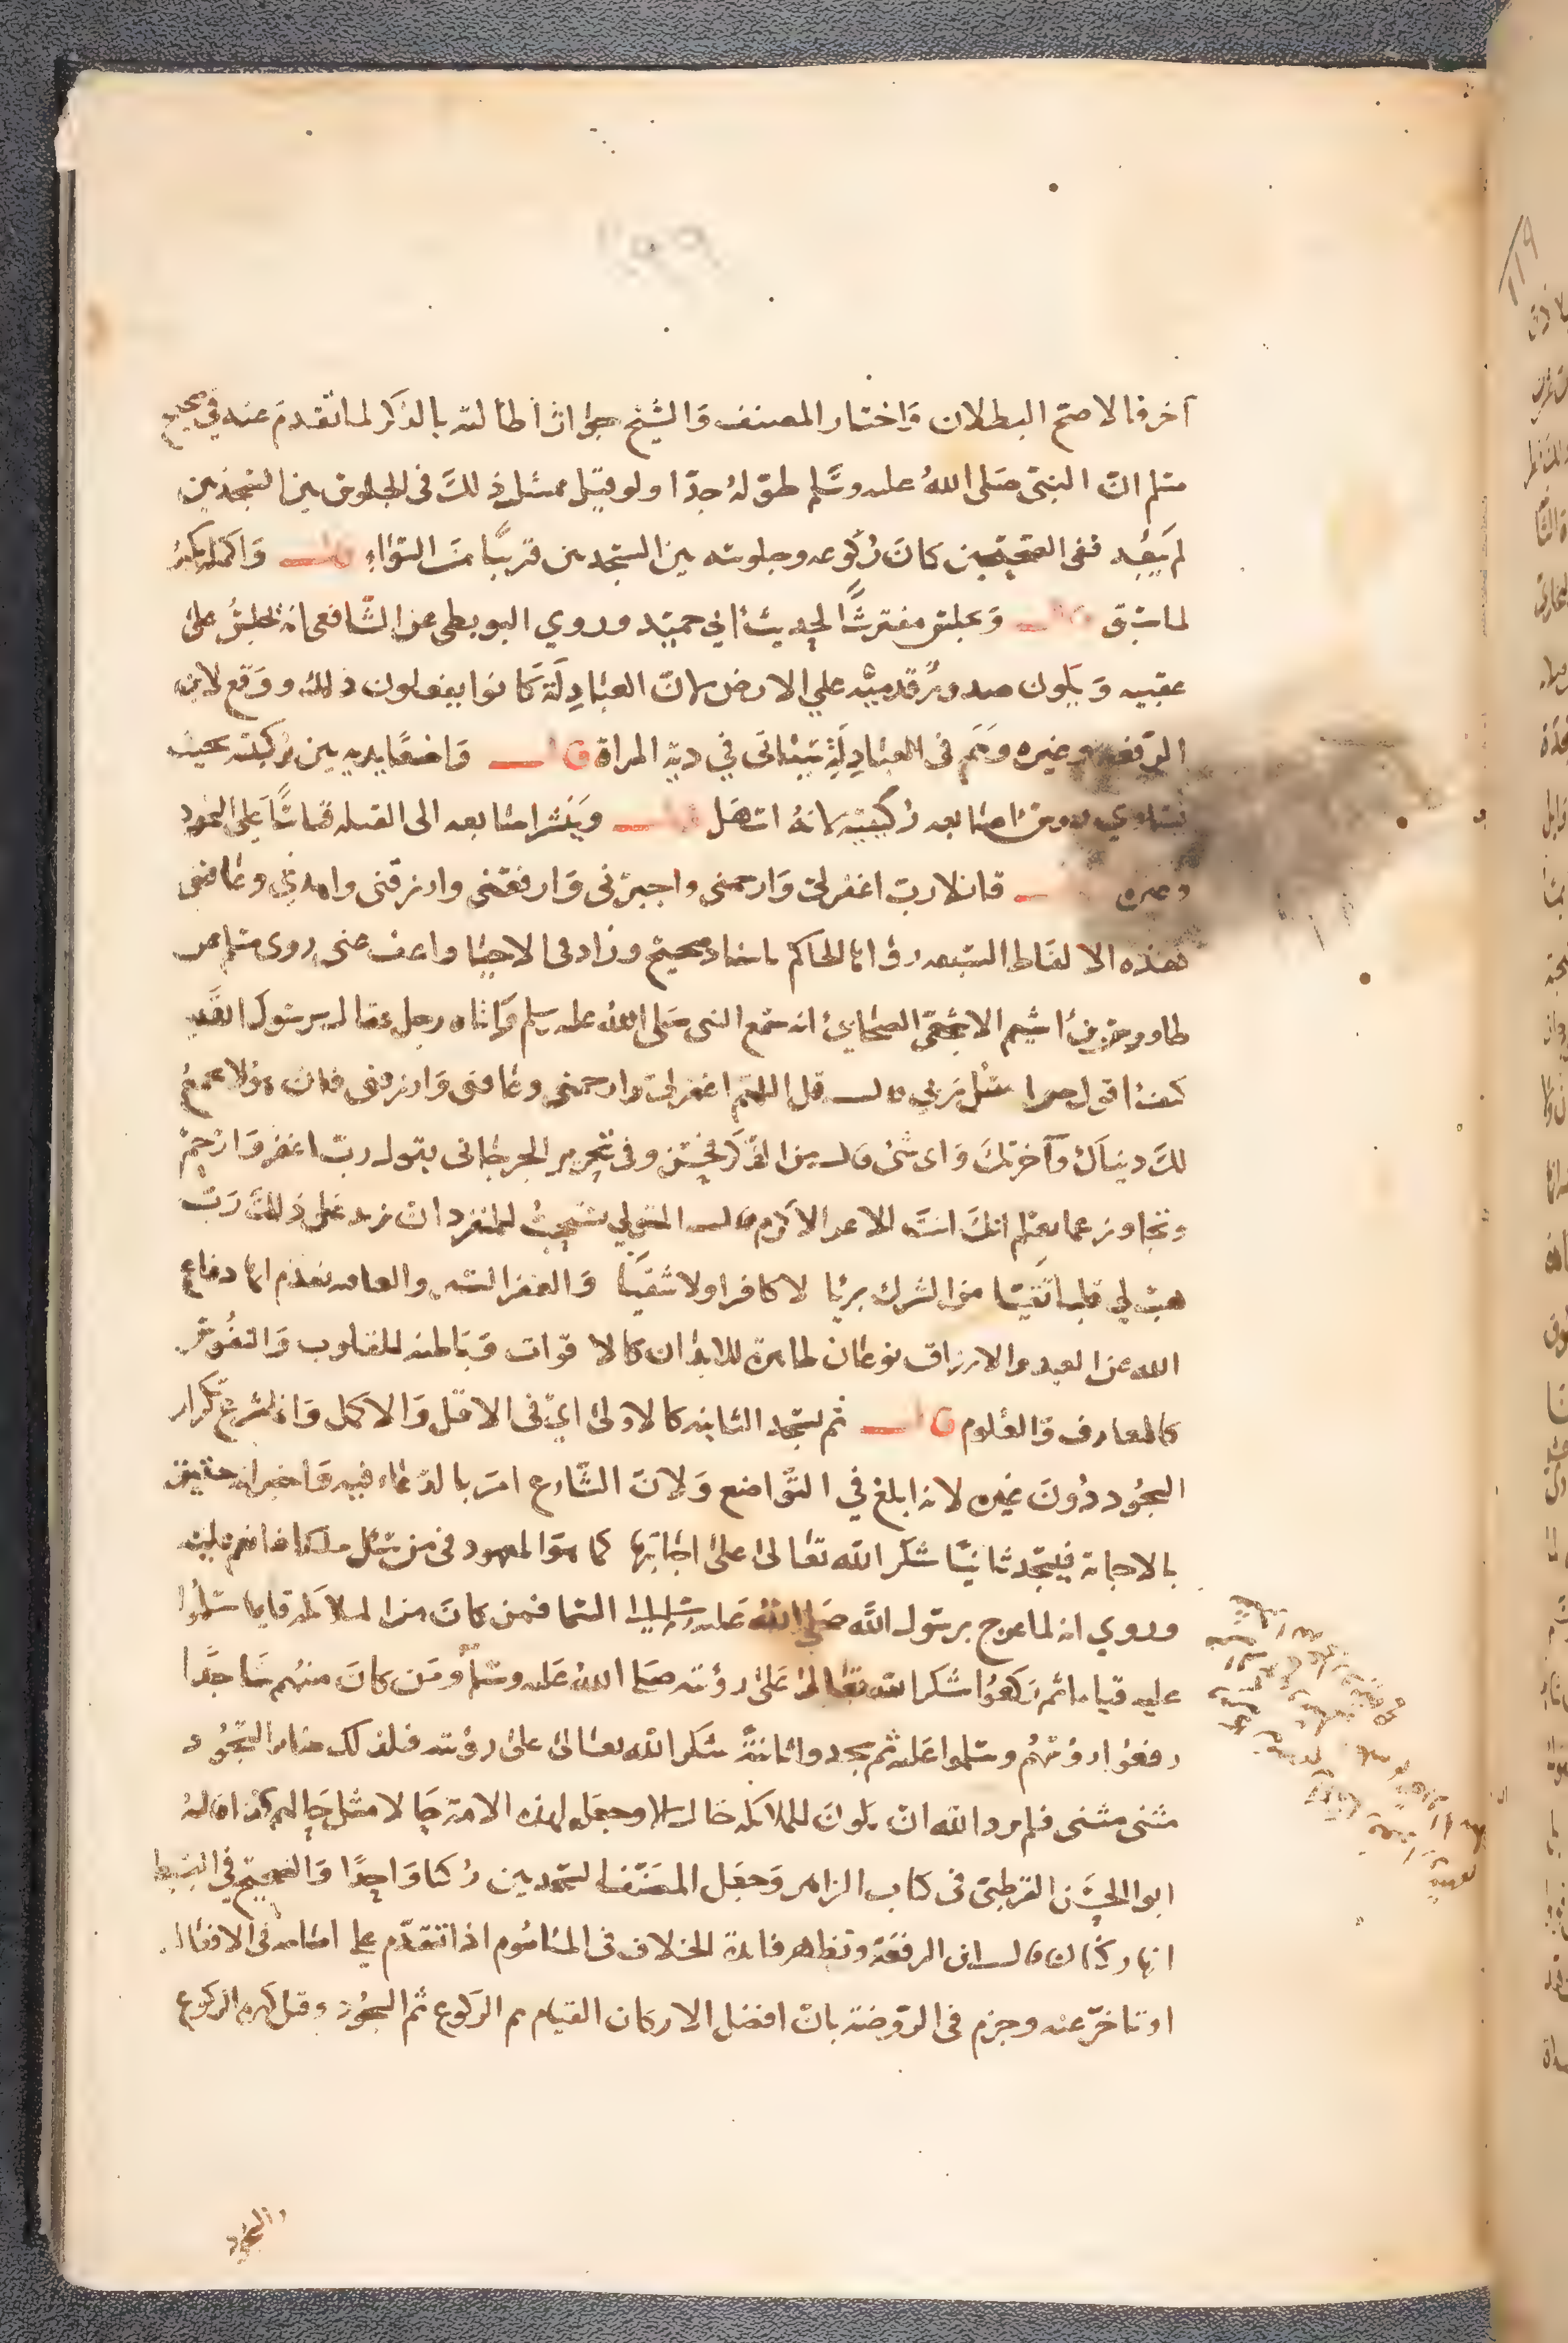 آخر فالاصح البطلان واختار المصنف والشيخ جواز اطالته بالذكر لما تقدم عنه في صحيح
مسلم ان النبي صلى الله عليه وسلم طوله جدا ولو قيل بمثل ذلك في الجلوس بين السجدتين
لم يبعد ففي الصحيحين كان ركوعه وجلوسه بين السجدتين قريبا من السواء قال واكمله يكبر
لما سبق قال ويجلس مفترشا لحديث ابي حميد وروي البويطي عن الشافعي انه يجلس على
عقبيه ويكون صدور قدميه علي الارض لان العبادلة كانوا يفعلون ذلك ووقع لابن
الرفعة وغيره وهم في العبادلة سياتي في دية المراة قال واضعا يديه بين ركبتيه بحيث
تتساوي رووس اصابعه ركبتيه لانه اسهل قال وينشر اصابعه الى القبله قياسا على السجود
وغيره قائلا رب اغفر لي وارحمني واجبرني وارفعني وارزقني واهدني وعافني
فهذه الالفاظ السبعه رواها الحاكم باسناد صحيح وزاد في الاحيا واعف عني روى مسلم عن
طارق بن اشيم الاشجعي الصحابي انه سمع النبي صلى الله عليه وسلم واتاه رجل فقال يرسول الله
كيف اقول حين اسئل ربي قال قل اللهم اغفر لي وارحمني وعافني وارزقني فان هولا تجمع
لك دنياك وآخرتك وفي تحرير الجرجاني يقول رب اغفر وارحم
وتجاوز عما تعلم انك انت الاعز الاكرم قال المتولي يستحب للمنفرد ان يزيد على ذلك رب
هب لي قلبا تقيا نقيا من الشرك بريا لا كافرا ولا شقيا والغفر الستر والعافيه تقدم انها دفاع
الله عن العبد والارزاق نوعان ظاهرة للابدان كالاقوات وباطنه للقلوب والنفوس
كالمعارف والعلوم قال ثم يسجد الثانيه كالاولى اي في الاقل والاكمل وانما شرع تكرار
السجود دون غيره لانه ابلغ في التواضع ولان الشارع امر بالدعاء فيه واخبر انه حقيق
بالاجابة فيسجد ثانيا شكرا لله تعالى على اجابتها كما هو المعهود في من سئل ملكا فانعم عليه
وروي انه لما عرج برسول الله صلى الله عليه وسلم الى السما فمن كان من الملائكه قايما سلموا
عليه قياما ثم ركعوا شكرا لله تعالى على رؤيته صلى الله عليه وسلم ومن كان منهم ساجدا
رفعوا رؤسهم وسلموا عليه ثم سجدوا ثانية شكرا لله تعالى على رؤيته فلذلك صار السجود
مثنى مثنى فلم يرد الله ان يكون للملائكه حال الا وجعل لهذه الامة حالا مثل حالهم كذا قاله
ابو الحسن القرطبي في كتاب الزاهر وجعل المصنف السجدتين ركنا واحدا والصحيح في البسيط
انها ركنان قال ابن الرفعة وتظهر فائدة الخلاف في الماموم اذا تقدم على امامه في الافعال
او تاخر عنه وجزم في الروضة بان افضل الاركان القيام ثم الركوع ثم السجود
والسجود